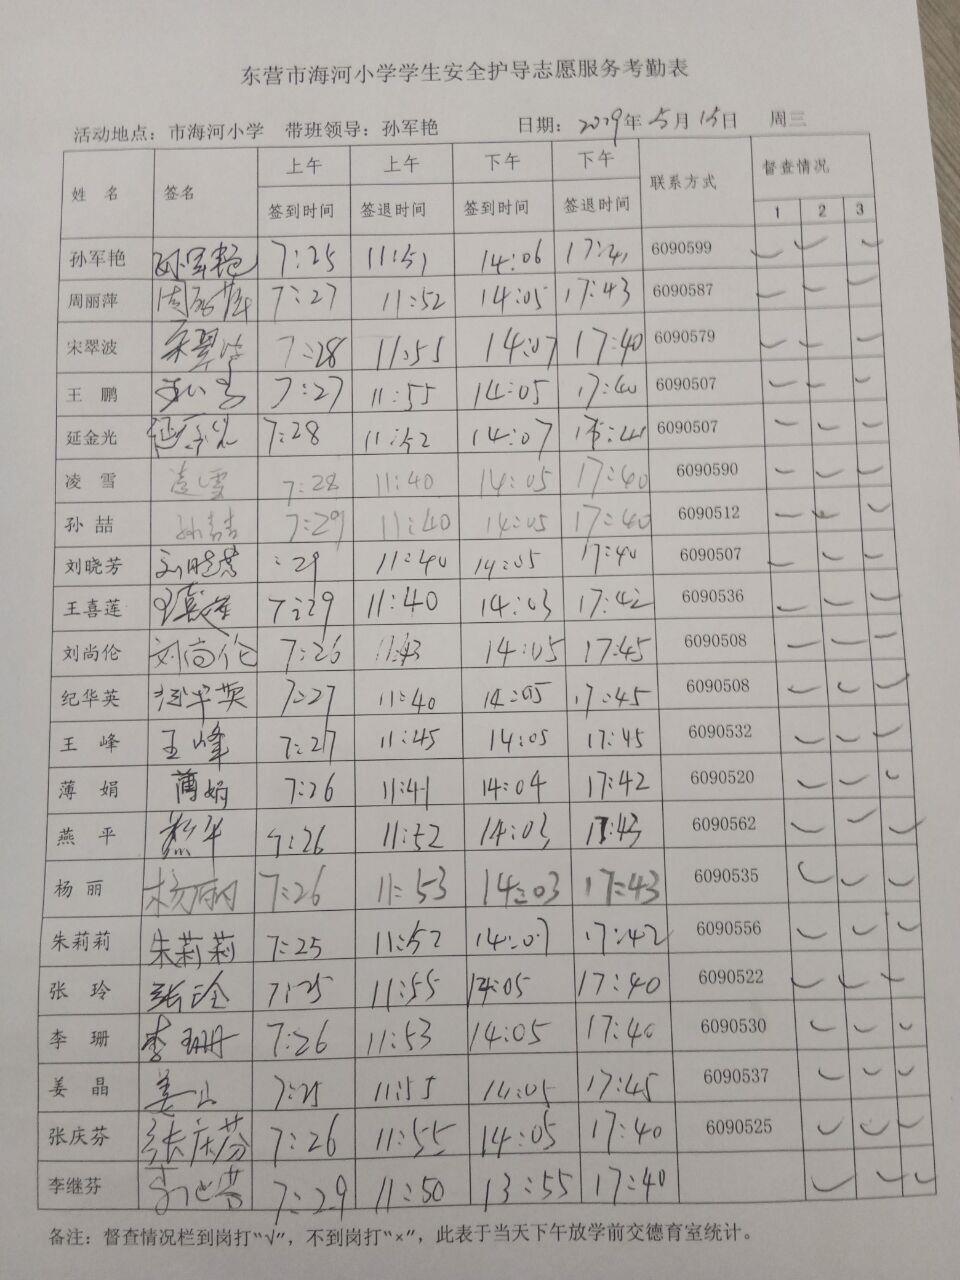 东营市海河小学学生安全护导志愿服务考勤表
活动地点：市海河小学 带班领导：孙军艳 日期：2019年5月15日 周三
姓 名 签名 上午 上午 下午 下午 联系方式 督查情况
签到时间 签退时间 签到时间 签退时间 1 2 3
孙军艳 孙军艳 7:25 11:51 14:06 17:41 6090599
周丽萍 周丽萍 7:27 11:52 14:05 17:43 6090587
宋翠波 宋翠波 7:28 11:55 14:07 17:40 6090579
王 鹏 7:27 11:55 14:05 17:40 6090507
延金光 延金光 7:28 11:52 14:07 6090507
凌 雪 凌雪 7:28 11:40 14:05 17:40 6090590
孙 喆 孙喆 7:29 11:40 14:05 17:40 6090512
刘晓芳 刘晓芳 :29 11:40 14:05 17:40 6090507
王喜莲 王喜莲 7:29 11:40 14:03 17:42 6090536
刘尚伦 刘尚伦 7:26 11:43 14:05 17:45 6090508
纪华英 纪华英 7:27 11:40 14:05 17:45 6090508
王 峰 王峰 7:27 11:45 14:05 17:45 6090532
薄 娟 薄娟 7:26 11:41 14:04 17:42 6090520
燕 平 燕平 7:26 11:52 14:03 17:43 6090562
杨 丽 杨丽 7:26 11:53 14:03 17:43 6090535
朱莉莉 朱莉莉 7:25 11:52 14:07 17:42 6090556
张 玲 张玲 7:25 11:55 14:05 17:40 6090522
李 珊 李珊 7:26 11:53 14:05 17:40 6090530
姜 晶 姜晶 7:25 11:55 14:05 17:45 6090537
张庆芬 张庆芬 7:26 11:55 14:05 17:40 6090525
李继芬 7:29 11:50 13:55 17:40
备注：督查情况栏到岗打“√”，不到岗打“×”，此表于当天下午放学前交德育室统计。